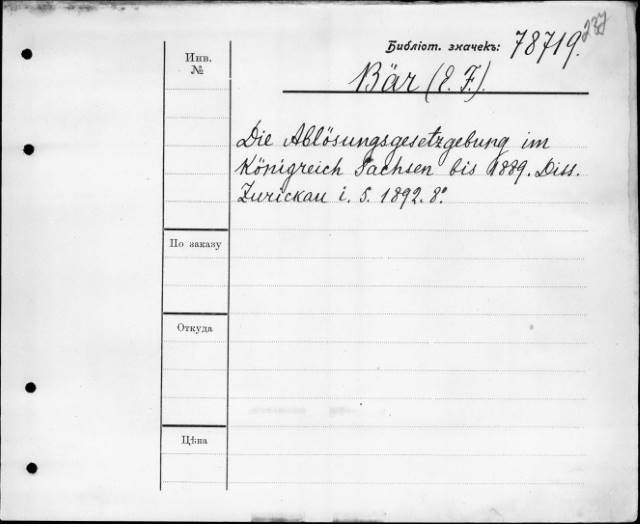 237
Библіот. значекъ: 78719.
Инв.
№
Bär (E. F.).
Die Ablösungsgesetzgebung im
Königreich Sachsen bis 1889. Diss.
Zwickau i. S. 1892. 8º
По заказу
Откуда
Цѣна